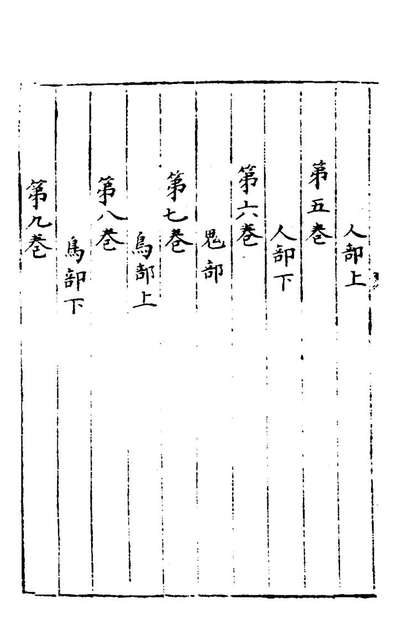 人部上
第五卷
人部下
第六卷
鬼部
第七卷
鳥部上
第八卷
鳥部下
第九卷